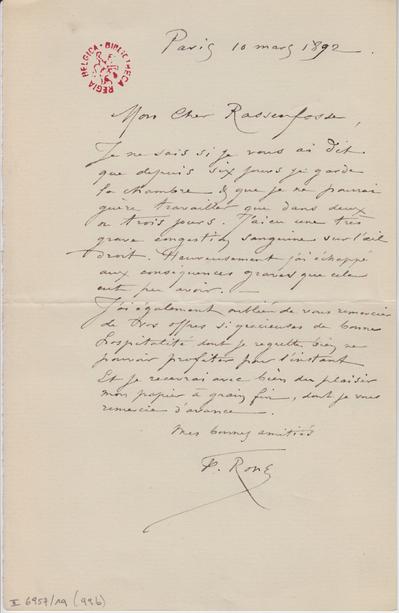 Paris 10 mars 1892.
BIBLIOTHECA REGIA BELGICA
Mon Cher Rassenfosse,
Je ne sais si je vous ai dit
que depuis six jours je garde
la chambre & que je ne pourrai
guère travailler que dans deux
ou trois jours. J'ai eu une très
grave congestion sanguine sur l'œil
droit. Heureusement j'ai échappé
aux conséquences graves que cela
eut pu avoir.
J'ai également oublié de vous remercier
de vos offres si gracieuses de bonne
hospitalité dont je regrette bien ne
pouvoir profiter pour l'instant
Et je recevrai avec bien du plaisir
mon papier à grain fin, dont je vous
remercie d'avance.
Mes bonnes amitiés
F. Rops
II 6957/19 (99b)